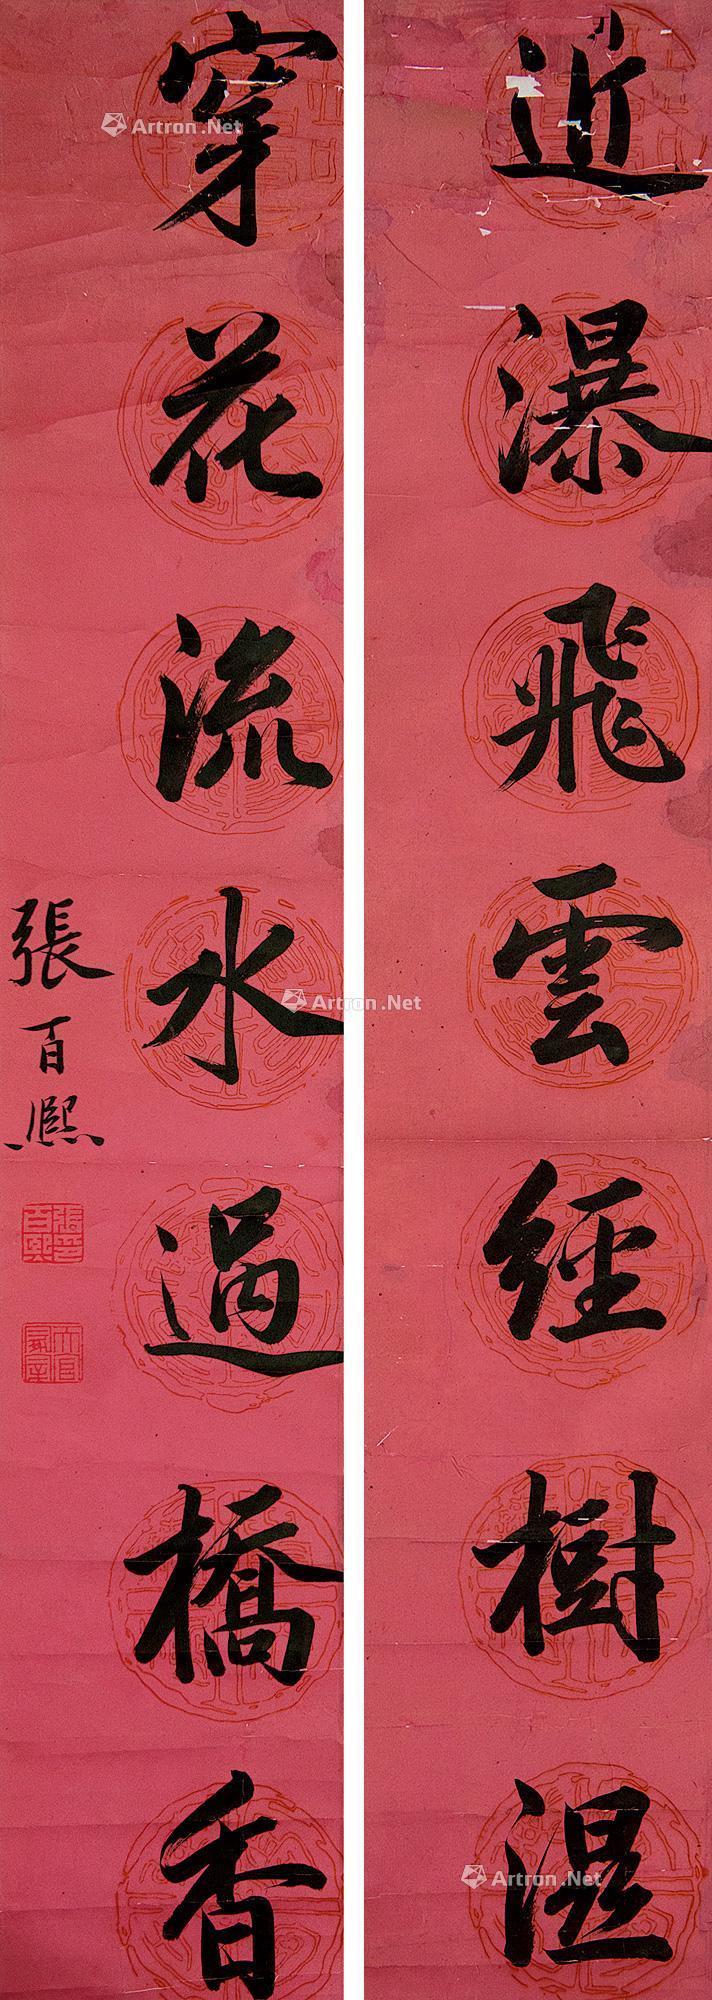 近瀑飛雲經樹濕
穿花流水過橋香
張百熙
張百熙印
Artron.Net
Artron.Net
Artron.Net